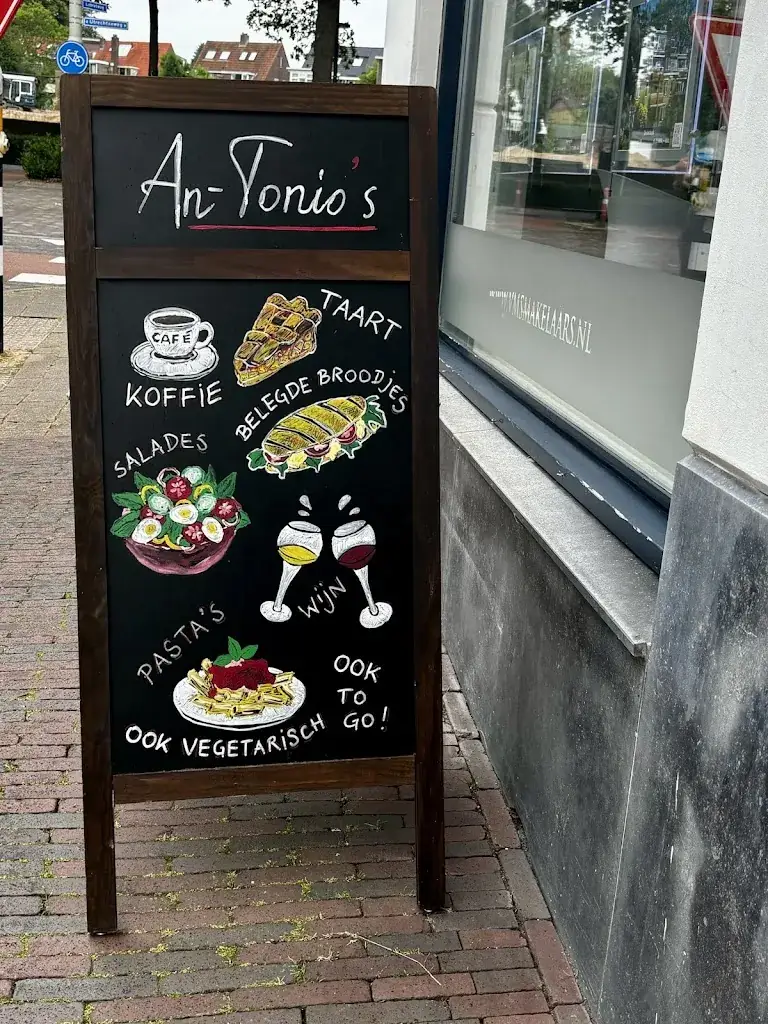 Utrechtseweg
An-Tonio's
CAFÉ
TAART
KOFFIE
BELEGDE BROODJES
SALADES
WIJN
PASTA'S
OOK
TO
GO!
OOK VEGETARISCH